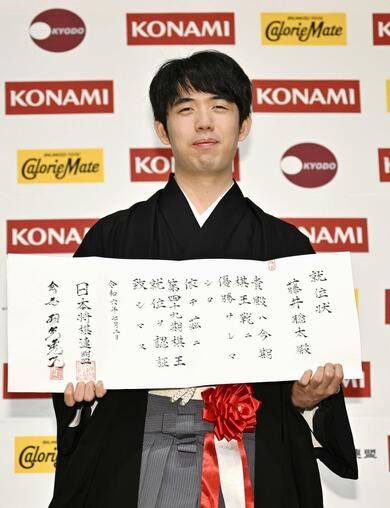 KYODO
KONAMI
BALANCED FOOD
CalorieMate
KONAMI
KONAMI
BALANCED FOOD
CalorieMate
KONAMI
KYODO
KONAMI
KONAMI
就位状
藤井聡太殿
貴殿ハ今期
棋王戦ニ
優勝サレマ
シタ
依テ茲ニ
第四十九期棋王
就位ヲ認証
致シマス
令和六年
日本将棋連盟
会長 羽生善治
CalorieMate
連盟